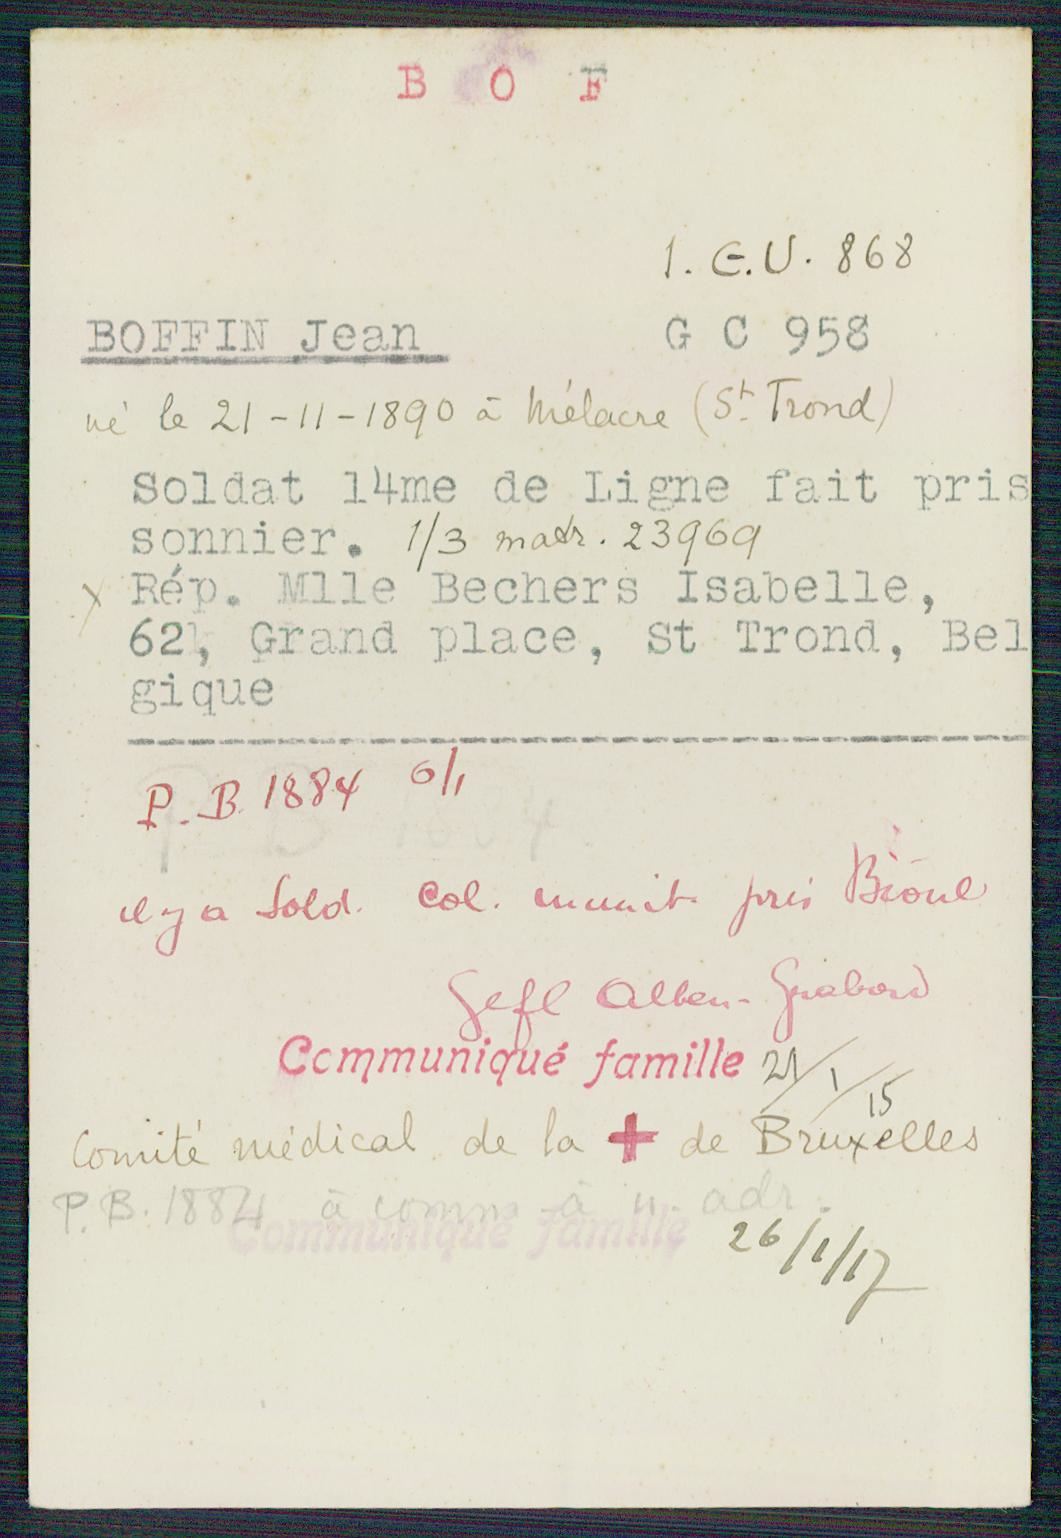 B O F
1. E.U. 868
BOFFIN Jean G C 958
né le 21-11-1890 à Mélacre (St. Trond)
Soldat 14me de Ligne fait pris
sonnier. 1/3 matr. 23969
x Rép. Mlle Bechers Isabelle,
62, Grand place, St Trond, Bel
gique
P.B. 1884 6/1
il y a Sold. Col. munit. près Bioul
Gefl Alten-Grabow
Communiqué famille 21/1/15
Comité médical de la + de Bruxelles
P.B. 1884 à comm à n. adr.
Communiqué famille 26/1/17